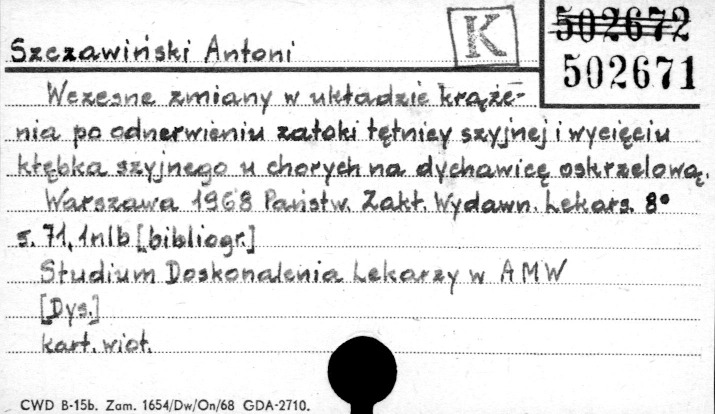 K
502672
502671
Szczawiński Antoni
Wczesne zmiany w układzie krąże-
nia po odnerwieniu zatoki tętnicy szyjnej i wycięciu
kłębka szyjnego u chorych na dychawicę oskrzelową.
Warszawa 1968 Państw. Zakł. Wydawn. Lekars. 8°
s. 71, 1nlb [bibliogr.]
Studium Doskonalenia Lekarzy w AMW
[Dys.]
kart. wiot.
CWD B-15b. Zam. 1654/Dw/On/68 GDA-2710.